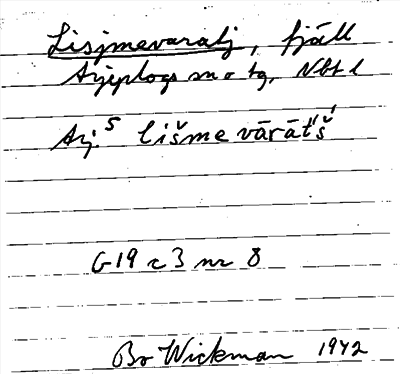 Lisjmevaratj, fjäll
Arjeplogs sn o tg, Nbt l
Arj. S lišme vārāt́š́
G 19 c 3 nr 8
Bo Wickman 1942